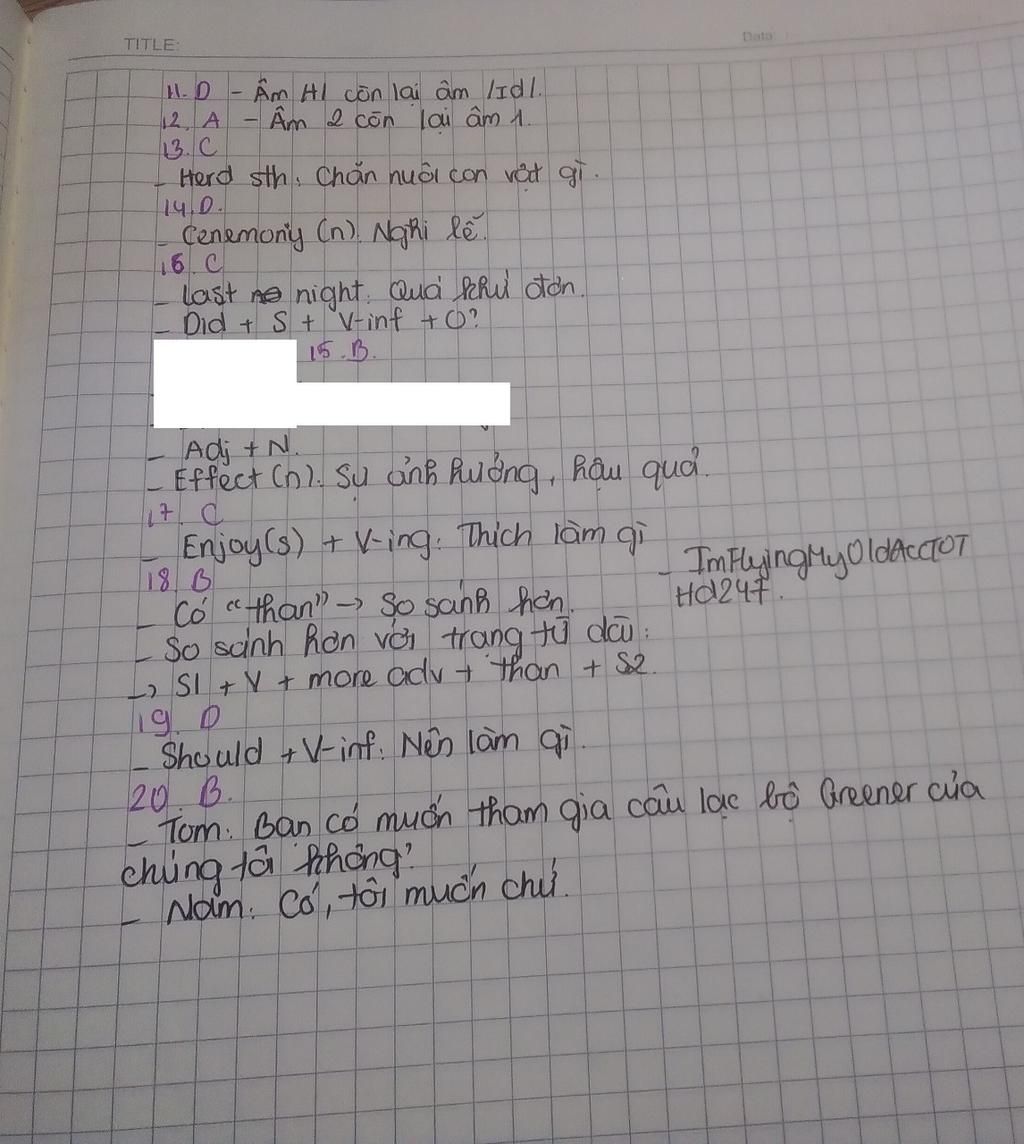 TITLE:
Data
11. D - Âm /t/ còn lại âm /ɪd/.
12. A - Âm 2 còn lại âm 1.
13. C
- Herd sth: Chăn nuôi con vật gì.
14. D.
- Cenemony (n). Nghi lễ.
16. C
- Last night: Quá khứ đơn.
- Did + S + V-inf + O?
15. B.
- Adj + N.
- Effect (n). Sự ảnh hưởng, hậu quả.
17. C
- Enjoy(s) + V-ing: Thích làm gì
- ImFlyingMyOldAccTOT
Hd247.
18. B
- Có “than” -> So sánh hơn.
- So sánh hơn với trạng từ dài:
-> S1 + V + more adv + than + S2.
19. D
- Should + V-inf: Nên làm gì.
20. B.
- Tom: Bạn có muốn tham gia câu lạc bộ Greener của
chúng tôi không?
- Nam: Có, tôi muốn chứ.